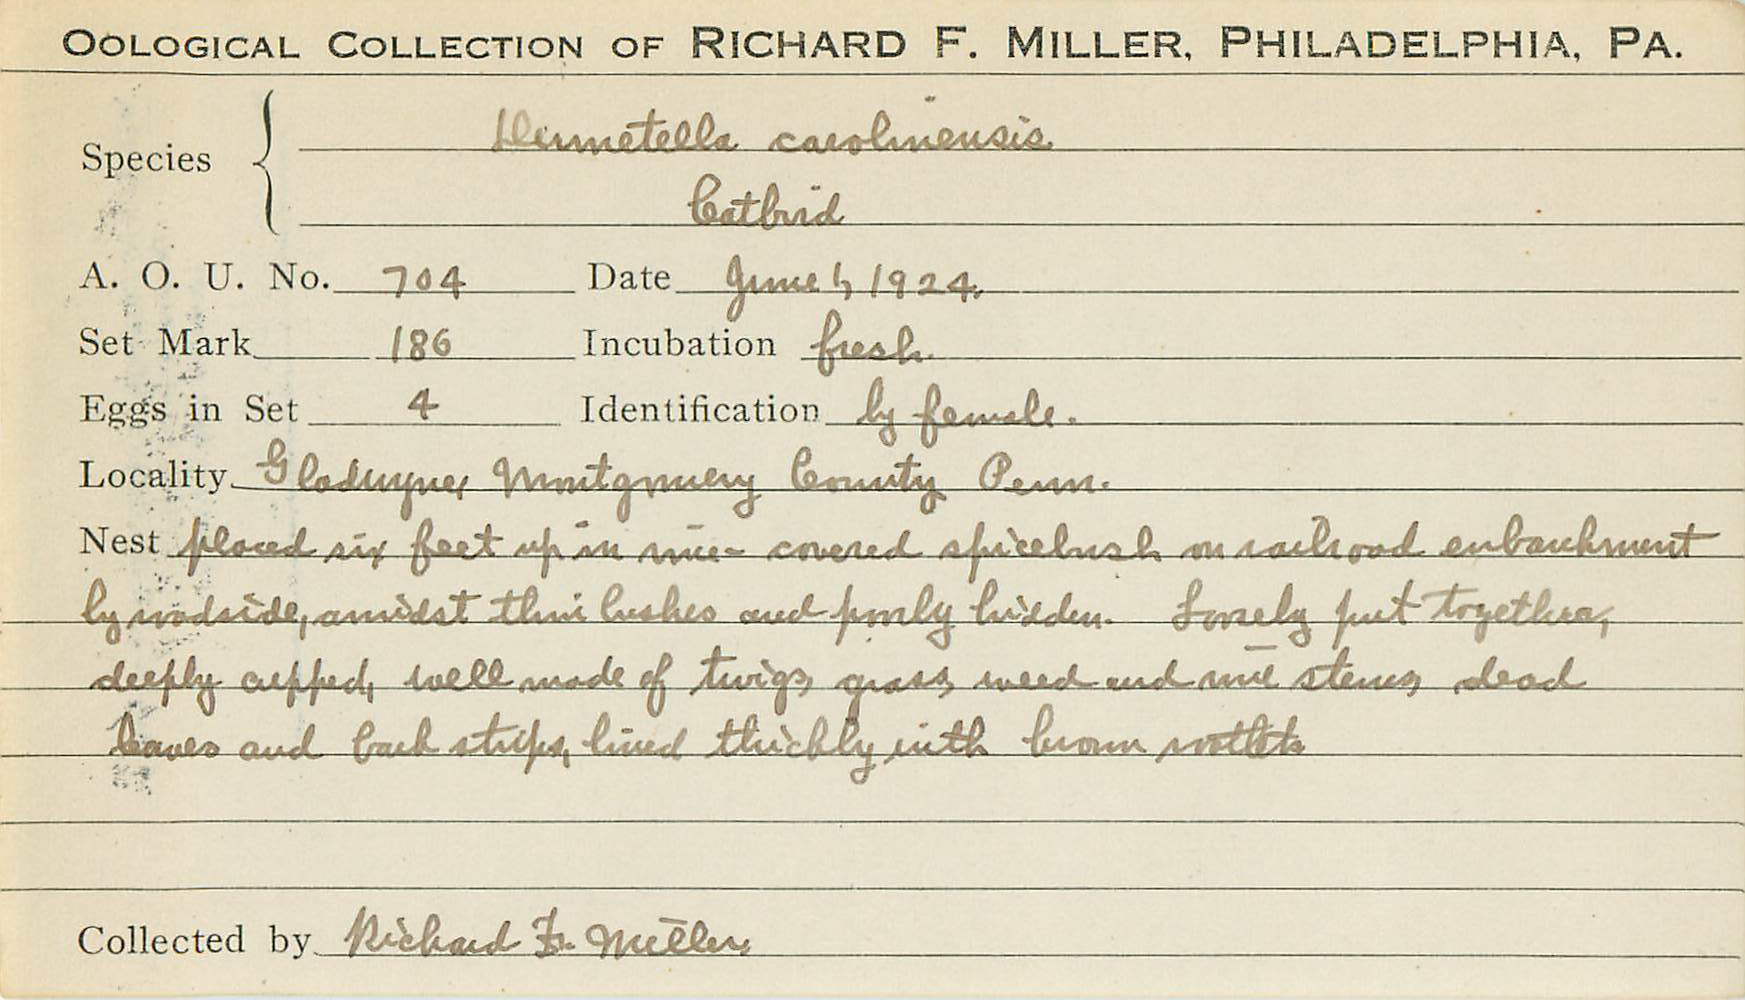 OOLOGICAL COLLECTION OF RICHARD F. MILLER, PHILADELPHIA, PA.
Species { Dumetella carolinensis
Catbird
A. O. U. No. 704 Date June 1, 1924.
Set Mark 186 Incubation fresh.
Eggs in Set 4 Identification by female.
Locality Gladwyne, Montgomery County Penn.
Nest placed six feet up in vine-covered spicebush on railroad embankment
by roadside, amidst thin bushes and poorly hidden. Loosely put together,
deeply cupped, well made of twigs, grass, weed and vine stems, dead
leaves and bark strips, lined thickly with brown rootlets
Collected by Richard F. Miller